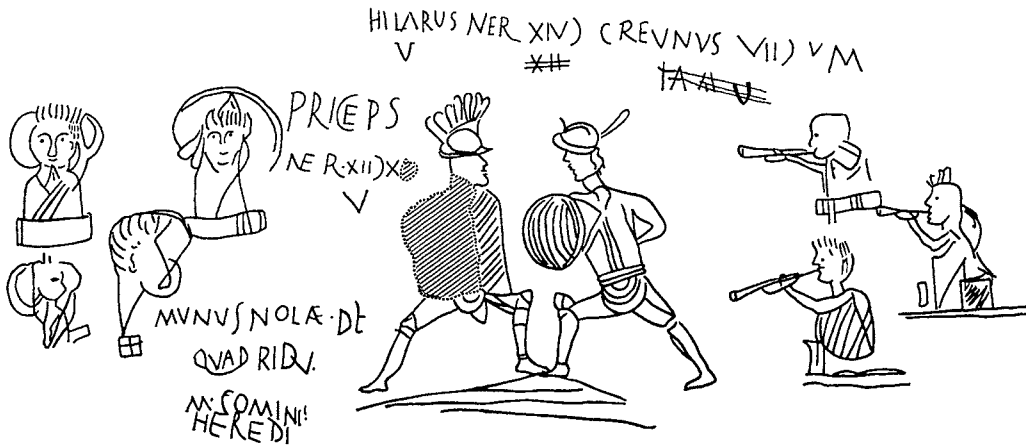 HILARUS NER XIV) CREVNVS VII) V M
V XII
PRICEPS
NER·XII)X
V
MVNVS NOLÆ·DE
QVADRIDV.
M·COMINI
HEREDI